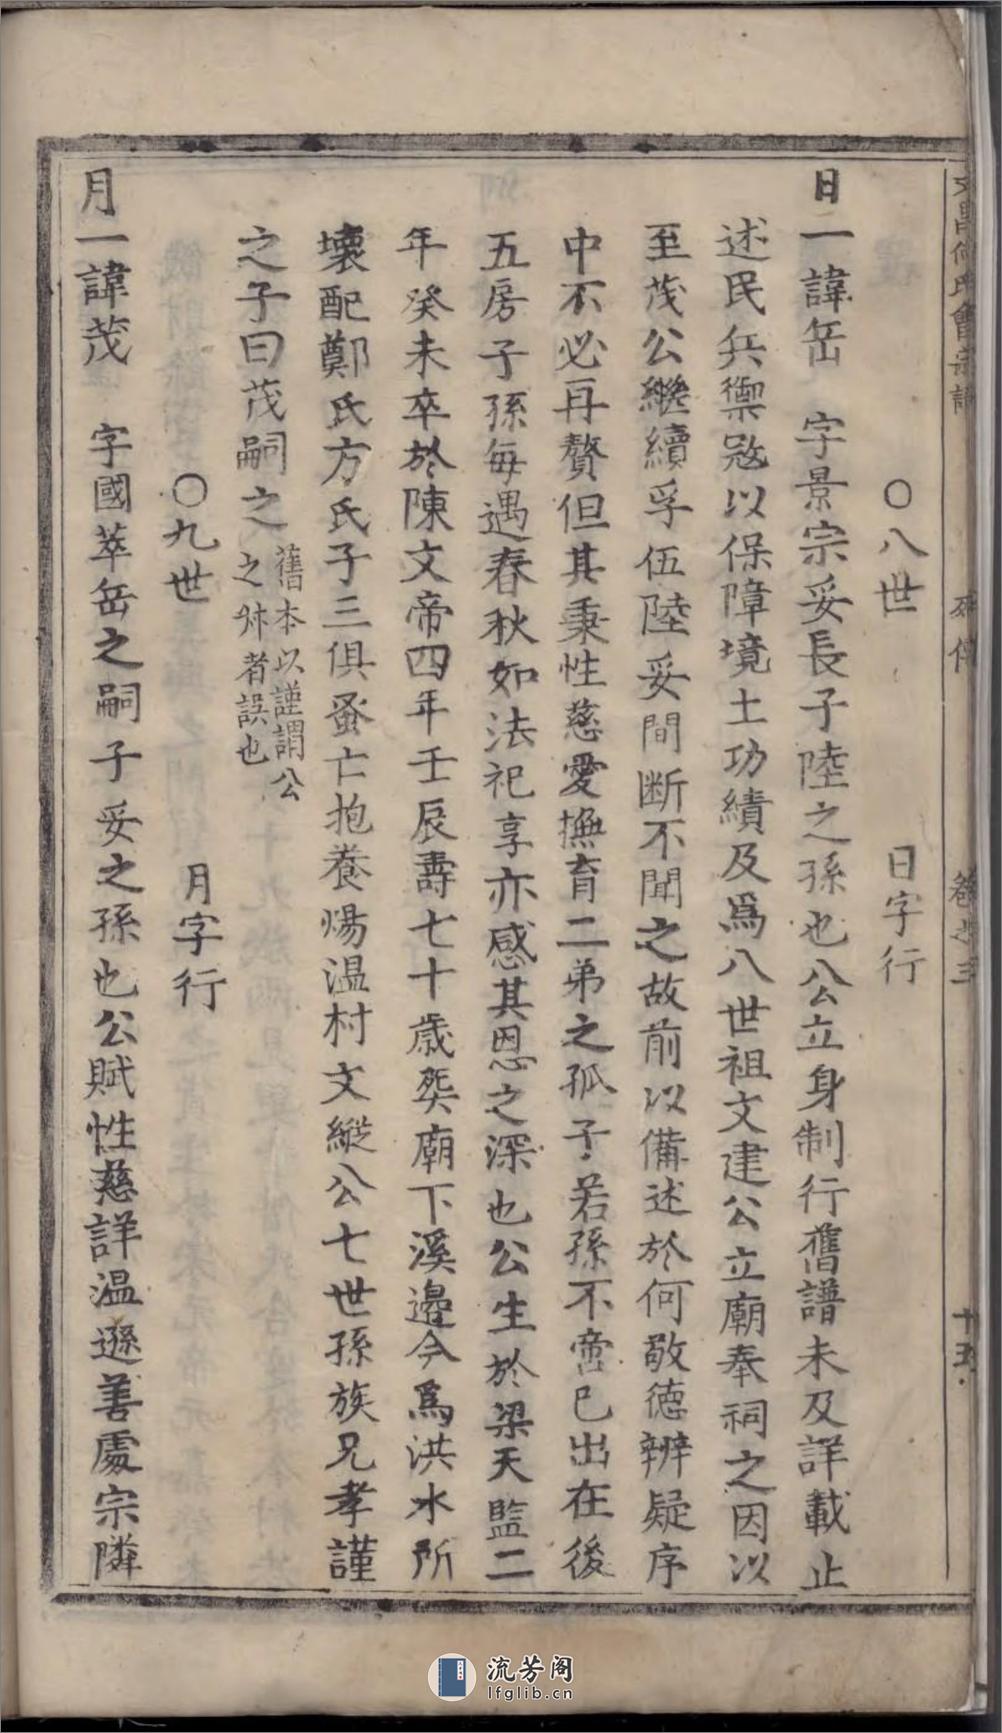 何氏會宗譜 卷之三 十五
○八世 日字行
日一諱岳 字景宗妥長子陸之孫也公立身制行舊譜未及詳載止
述民兵禦寇以保障境土功績及爲八世祖文建公立廟奉祠之因以
至茂公繼續孚伍陸妥間断不聞之故前以備述於何敬德辨疑序
中不必再贅但其秉性慈愛撫育二弟之孤子若孫不啻已出在後
五房子孫每遇春秋如法祀享亦感其恩之深也公生於梁天監二
年癸未卒於陳文帝四年壬辰壽七十歲塟廟下溪邉今爲洪水所
壊配鄭氏方氏子三俱蚤亡抱養煬温村文縱公七世孫族兄孝謹
之子曰茂嗣之 舊本以謹謂公
之姪者誤也
○九世 月字行
月一諱茂 字國萃岳之嗣子妥之孫也公賦性慈詳温遜善處宗隣
流芳阁
lfglib.cn